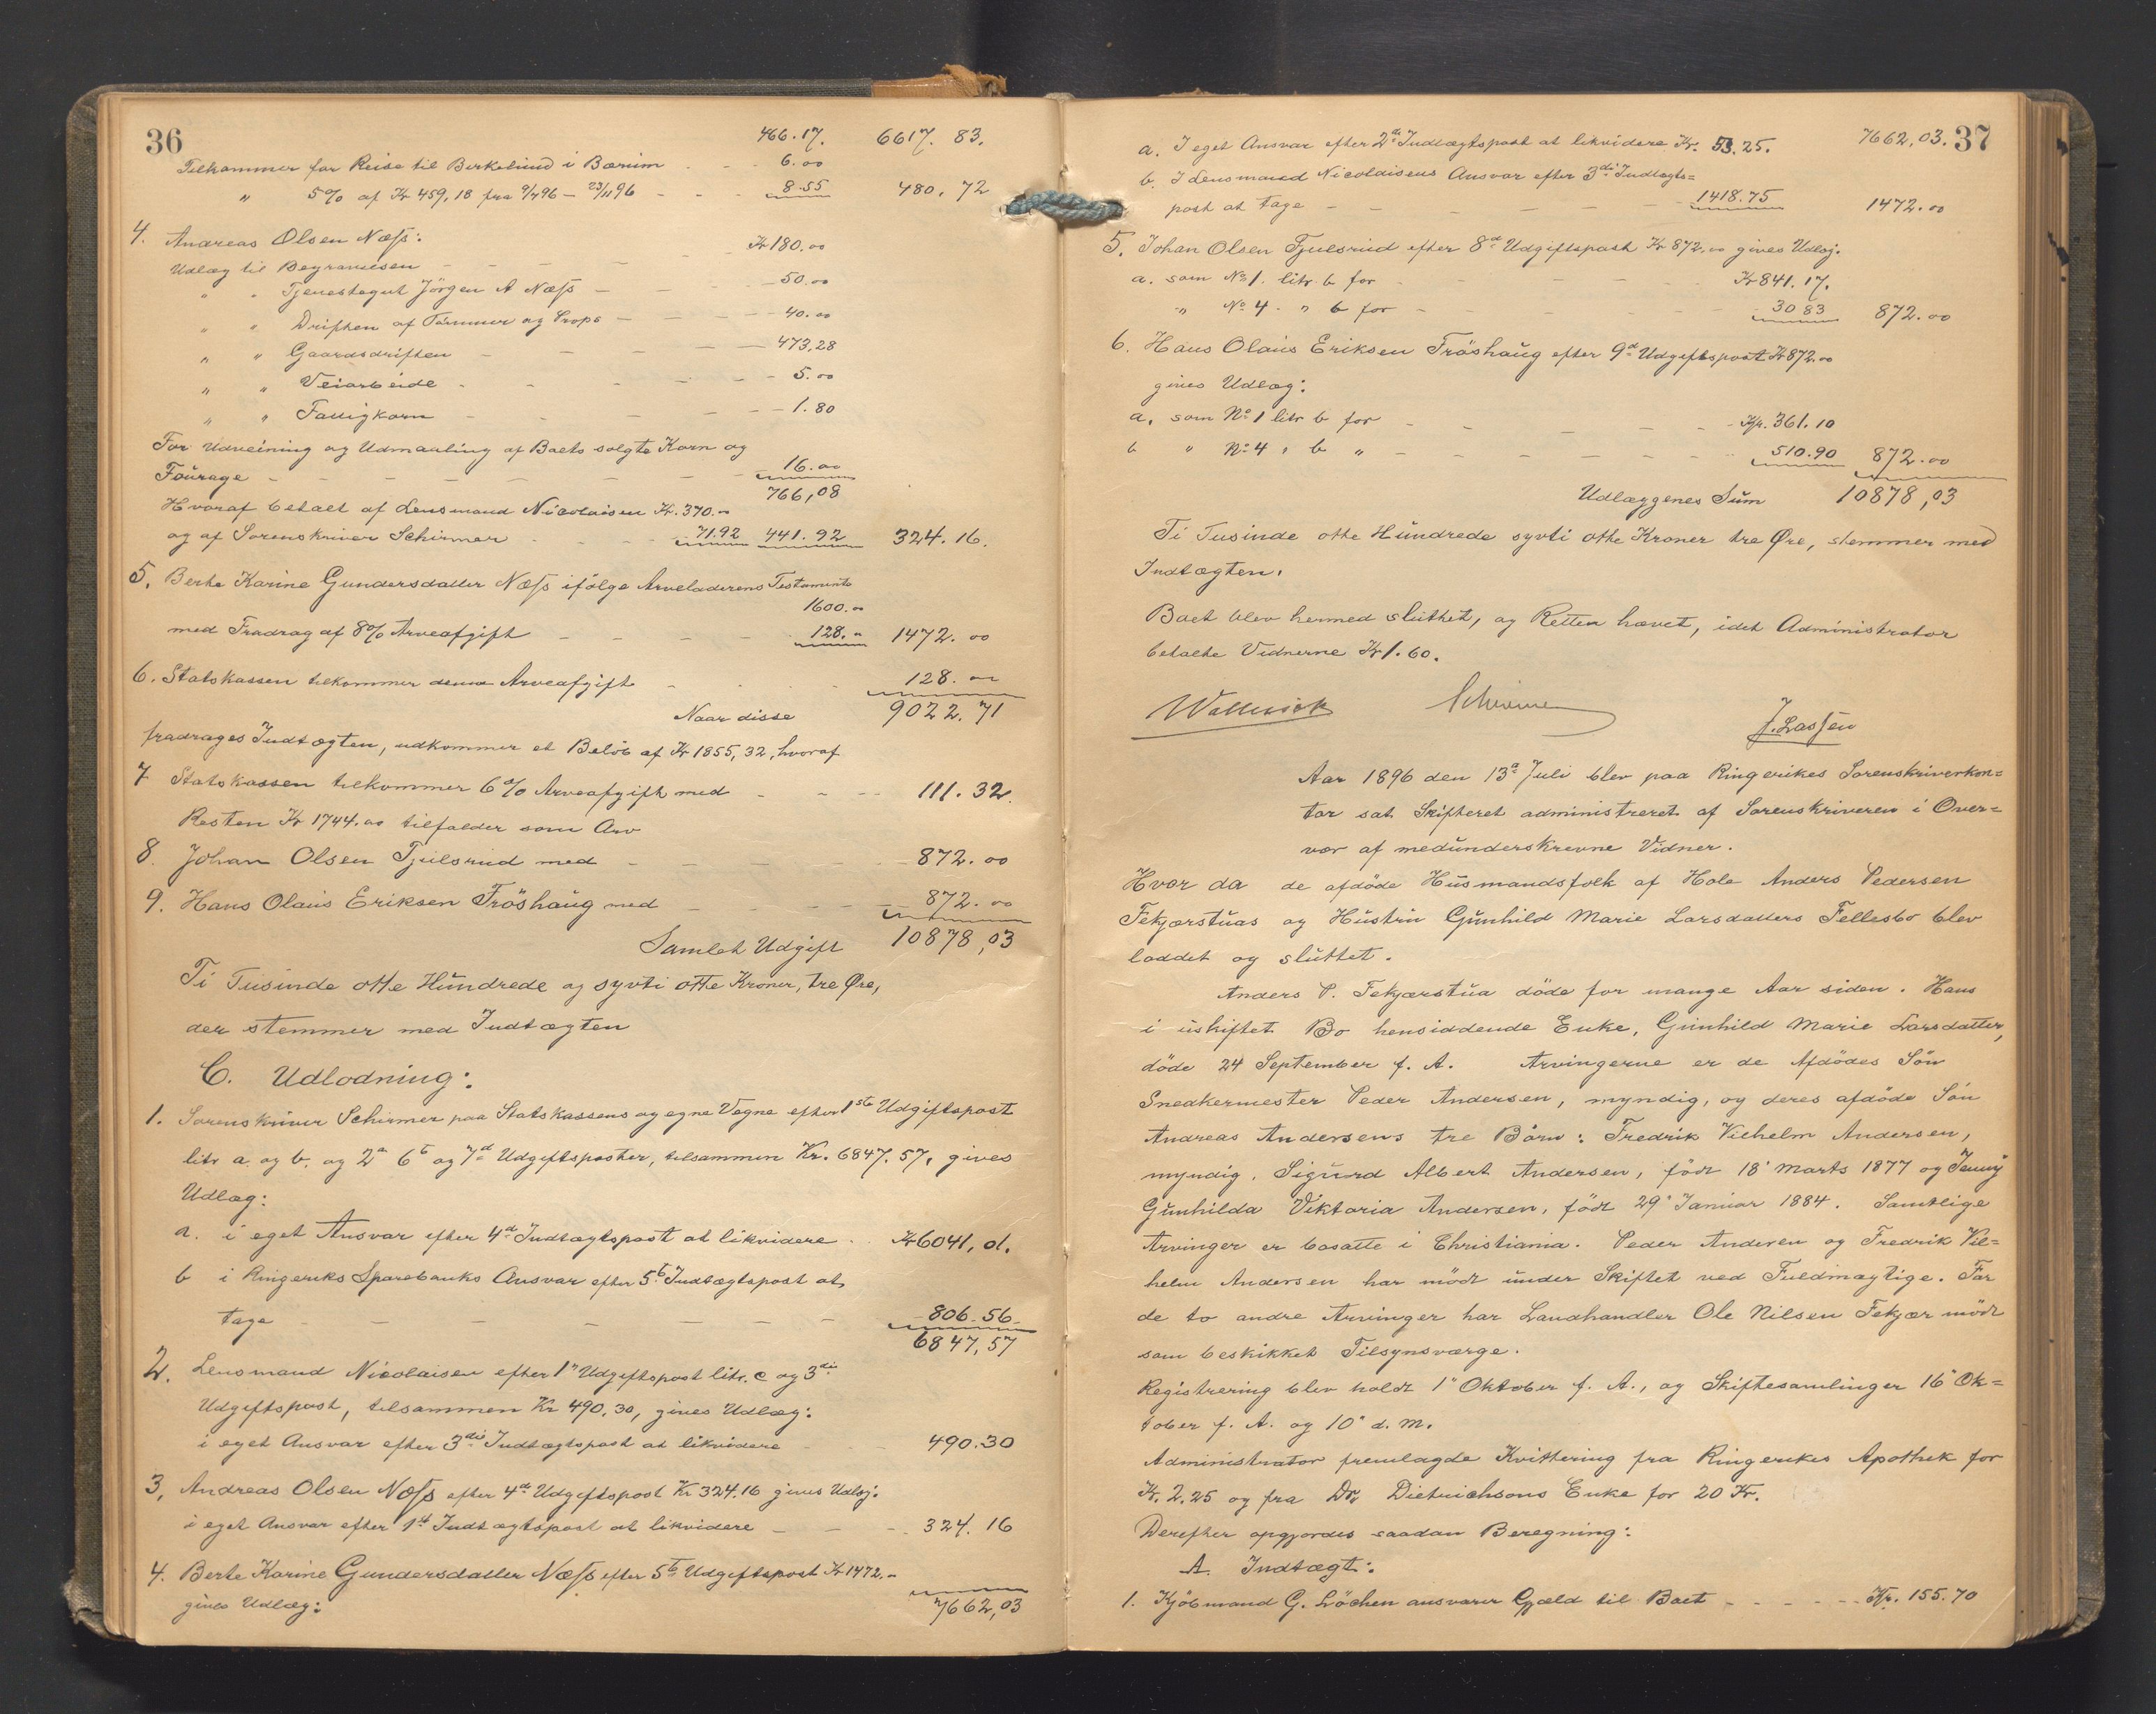 36
466.17. 6617. 83.
Tilkommer for Reise til Birkelund i Bærum - - 6.00
" 5% af Kr 459,18 fra 9/7 96 — 23/11 96 - - - 8.55 480,72
4. Andreas Olsen Næss:
Udlæg til Begravelsen - - - - - Kr 180.00
" " Tjenestegut Jörgen A Næss - - - - 50.00
" " Driften af Tömmer og Props - - - - 40.00
" " Gaardsdriften - - - - - 473,28
" " Veiarbeide - - - - - 5.00
" " Fattigkorn - - - - - 1.80
For Udveining og Udmaaling af Boets solgte Korn og
Fourage - - - - - - 16.00
766,08
Hvoraf betalt af Lensmand Nicolaisen Kr. 370.00
og af Sorenskriver Schirmer - - - 71.92 441.92 324.16.
5. Berte Karine Gundersdatter Næss ifölge Arveladerens Testamente
1600.00
med Fradrag af 8% Arveafgift - - - - 128.00 1472.00
6. Statskassen tilkommer denne Arveafgift - - - 128.00
Naar disse 9022.71
fradrages Indtægten, udkommer et Belöb af Kr 1855,32, hvoraf
7 Statskassen tilkommer 6% Arveafgift med - - - 111.32.
Resten Kr 1744.00 tilfalder som Arv
8. Johan Olsen Tjulsrud med - - - - 872.00
9. Hans Olaus Eriksen Fröshaug med - - - - 872.00
Samlet Udgift 10878,03
Ti Tusinde otte Hundrede og sytti otte Kroner, tre Øre,
der stemmer med Indtægten
C. Udlodning:
1. Sorenskriver Schirmer paa Statskassens og egne Vegne efter 1ste Udgiftspost
litr a. og b. og 2a 6t og 7d Udgiftsposter, tilsammen Kr. 6847.57, gives
Udlæg:
a. i eget Ansvar efter 4d Indtægtspost at likvidere - Kr 6041,01.
b i Ringeriks Sparebanks Ansvar efter 5t Indtægtspost at
tage - - - - - - - 806.56.
6847,57
2. Lensmand Nicolaisen efter 1" Udgiftspost litr. c og 3die
Udgiftspost, tilsammen Kr 490,30, gives Udlæg:
i eget Ansvar efter 3die Indtægtspost at likvidere - - 490.30
3, Andreas Olsen Næss efter 4d Udgiftspost Kr 324.16 gives Udlæg:
i eget Ansvar efter 1st Indtægtspost at likvidere - - - 324.16
4. Berte Karine Gundersdatter Næss efter 5t Udgiftspost Kr 1472.-
gives Udlæg: 7662,03
7662,03. 37
a. I eget Ansvar efter 2d Indtægtspost at likvidere Kr. 53.25.
b. I Lensmand Nicolaisens Ansvar efter 3die Indtægts=
post at tage - - - - - - 1418.75 1472.00
5. Johan Olsen Tjulsrud efter 8d Udgiftspost Kr 872.00 gives Udlæg.
a. som No 1. litr. b for - - - - Kr 841.17.
" No 4 - " b for - - - - 30 83 872.00
6. Hans Olaus Eriksen Fröshaug efter 9d Udgiftspost Kr 872.00
gives Udlæg:
a, som No 1 litr b for - - - - - Kr. 361.10
b " No 4 " b " - - - - - - 510.90 872.00
Udlæggenes Sum 10878,03
Ti Tusinde otte Hundrede sytti otte Kroner tre Øre, stemmer med
Indtægten.
Boet blev hermed sluttet, og Retten hævet, idet Administrator
betalte Vidnerne Kr 1.60.
Schirmer
J. Lassen
Aar 1896 den 13a Juli blev paa Ringerikes Sorenskriverkon=
tor sat Skifteret administreret af Sorenskriveren i Over=
vær af medunderskrevne Vidner.
Hvor da de afdöde Husmandsfolk af Hole Anders Pedersen
Fekjærstuas og Hustru Gunhild Marie Larsdatters Fellesbo blev
loddet og sluttet.
Anders P. Fekjærstua döde for mange Aar siden. Hans
i uskiftet Bo hensiddende Enke, Gunhild Marie Larsdatter,
döde 24 September f. A. Arvingerne er de Afdödes Sön
Snedkermester Peder Andersen, myndig, og deres afdöde Sön
Andreas Andersens tre Börn: Fredrik Vilhelm Andersen,
myndig, Sigurd Albert Andersen, födt 18' Marts 1877 og Jenny
Gunhilda Viktoria Andersen, födt 29' Januar 1884. Samtlige
Arvinger er bosatte i Christiania. Peder Andersen og Fredrik Vil=
helm Andersen har mödt under Skiftet ved Fuldmægtige. For
de to andre Arvinger har Landhandler Ole Nilsen Fekjær mödt
som beskikket Tilsynsværge.
Registrering blev holdt 1" Oktober f. A., og Skiftesamlinger 16' Ok=
tober f. A. og 10' d. M.
Administrator fremlagde Kvittering fra Ringerikes Apothek for
Kr. 2.25 og fra Dr. Dietrichsons Enke for 20 Kr.
Derefter opgjordes saadan Beregning:
A. Indtægt:
1. Kjöbmand G. Löchen ansvarer Gjæld til Boet - - - - - Kr. 155.70